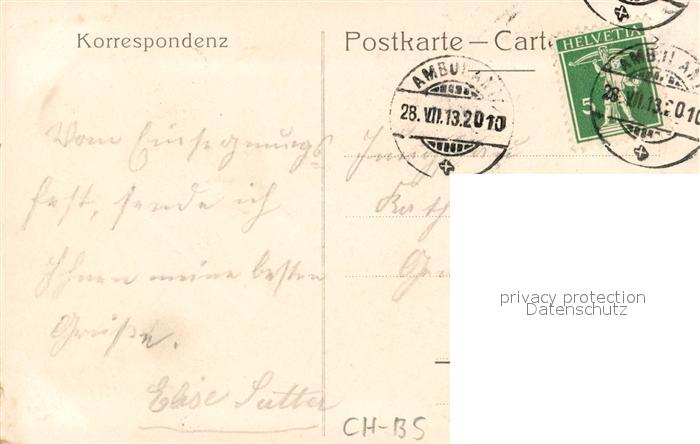 Korrespondenz
Postkarte — Carte
HELVETIA
5
AMBULANT
28. VII. 13. 20 10
AMBULAN
28. VII. 13. 20 10
Vom Einsegnungs
fest, sende ich
Ihnen meine besten
Grüße.
Elise Sutter
CH-BS
privacy protection
Datenschutz